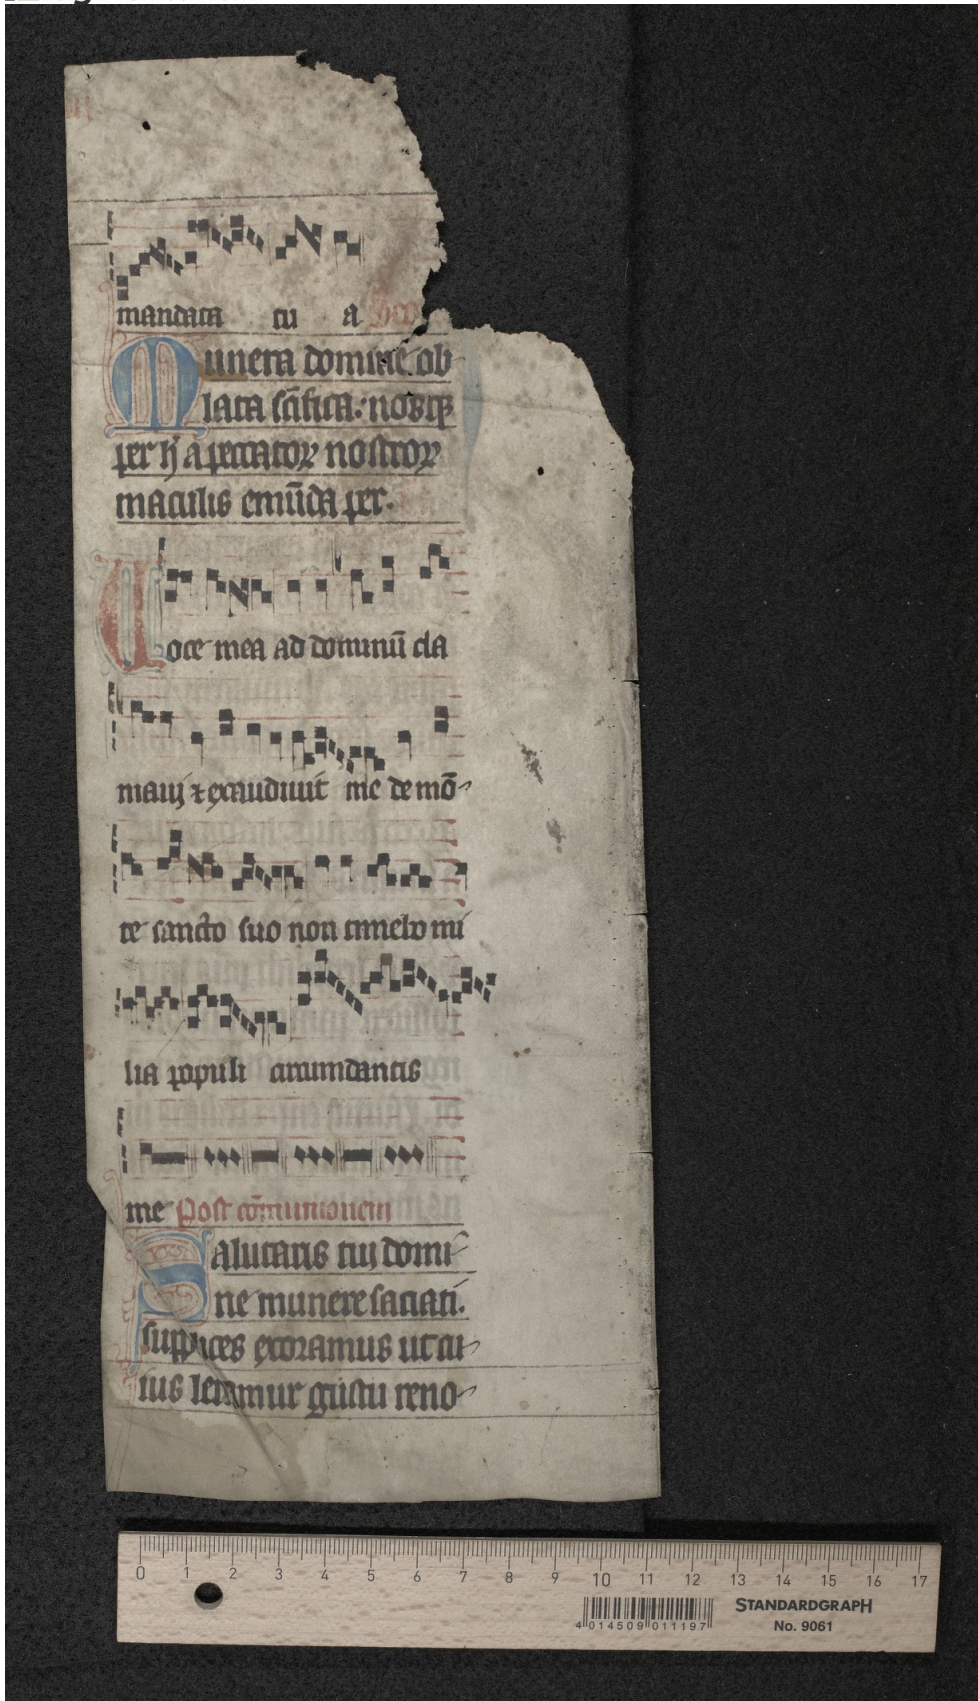 mandata tu a Secr
Munera domine ob
lata sc̄ifica: nosq;
per h̄ a peccatoꝝ nostroꝝ
maculis emūda per.
Voce mea ad dominū cla
maui ⁊ exaudiuit me de mō
te sancto suo non timebo mi
lia populi circumdantis
me Post cōmunionem
Salutaris tui domi
ne munere saciati.
supplices exoramus ut cu
ius letamur gustu reno
0 1 2 3 4 5 6 7 8 9 10 11 12 13 14 15 16 17
4 014509 011197
STANDARDGRAPH
No. 9061